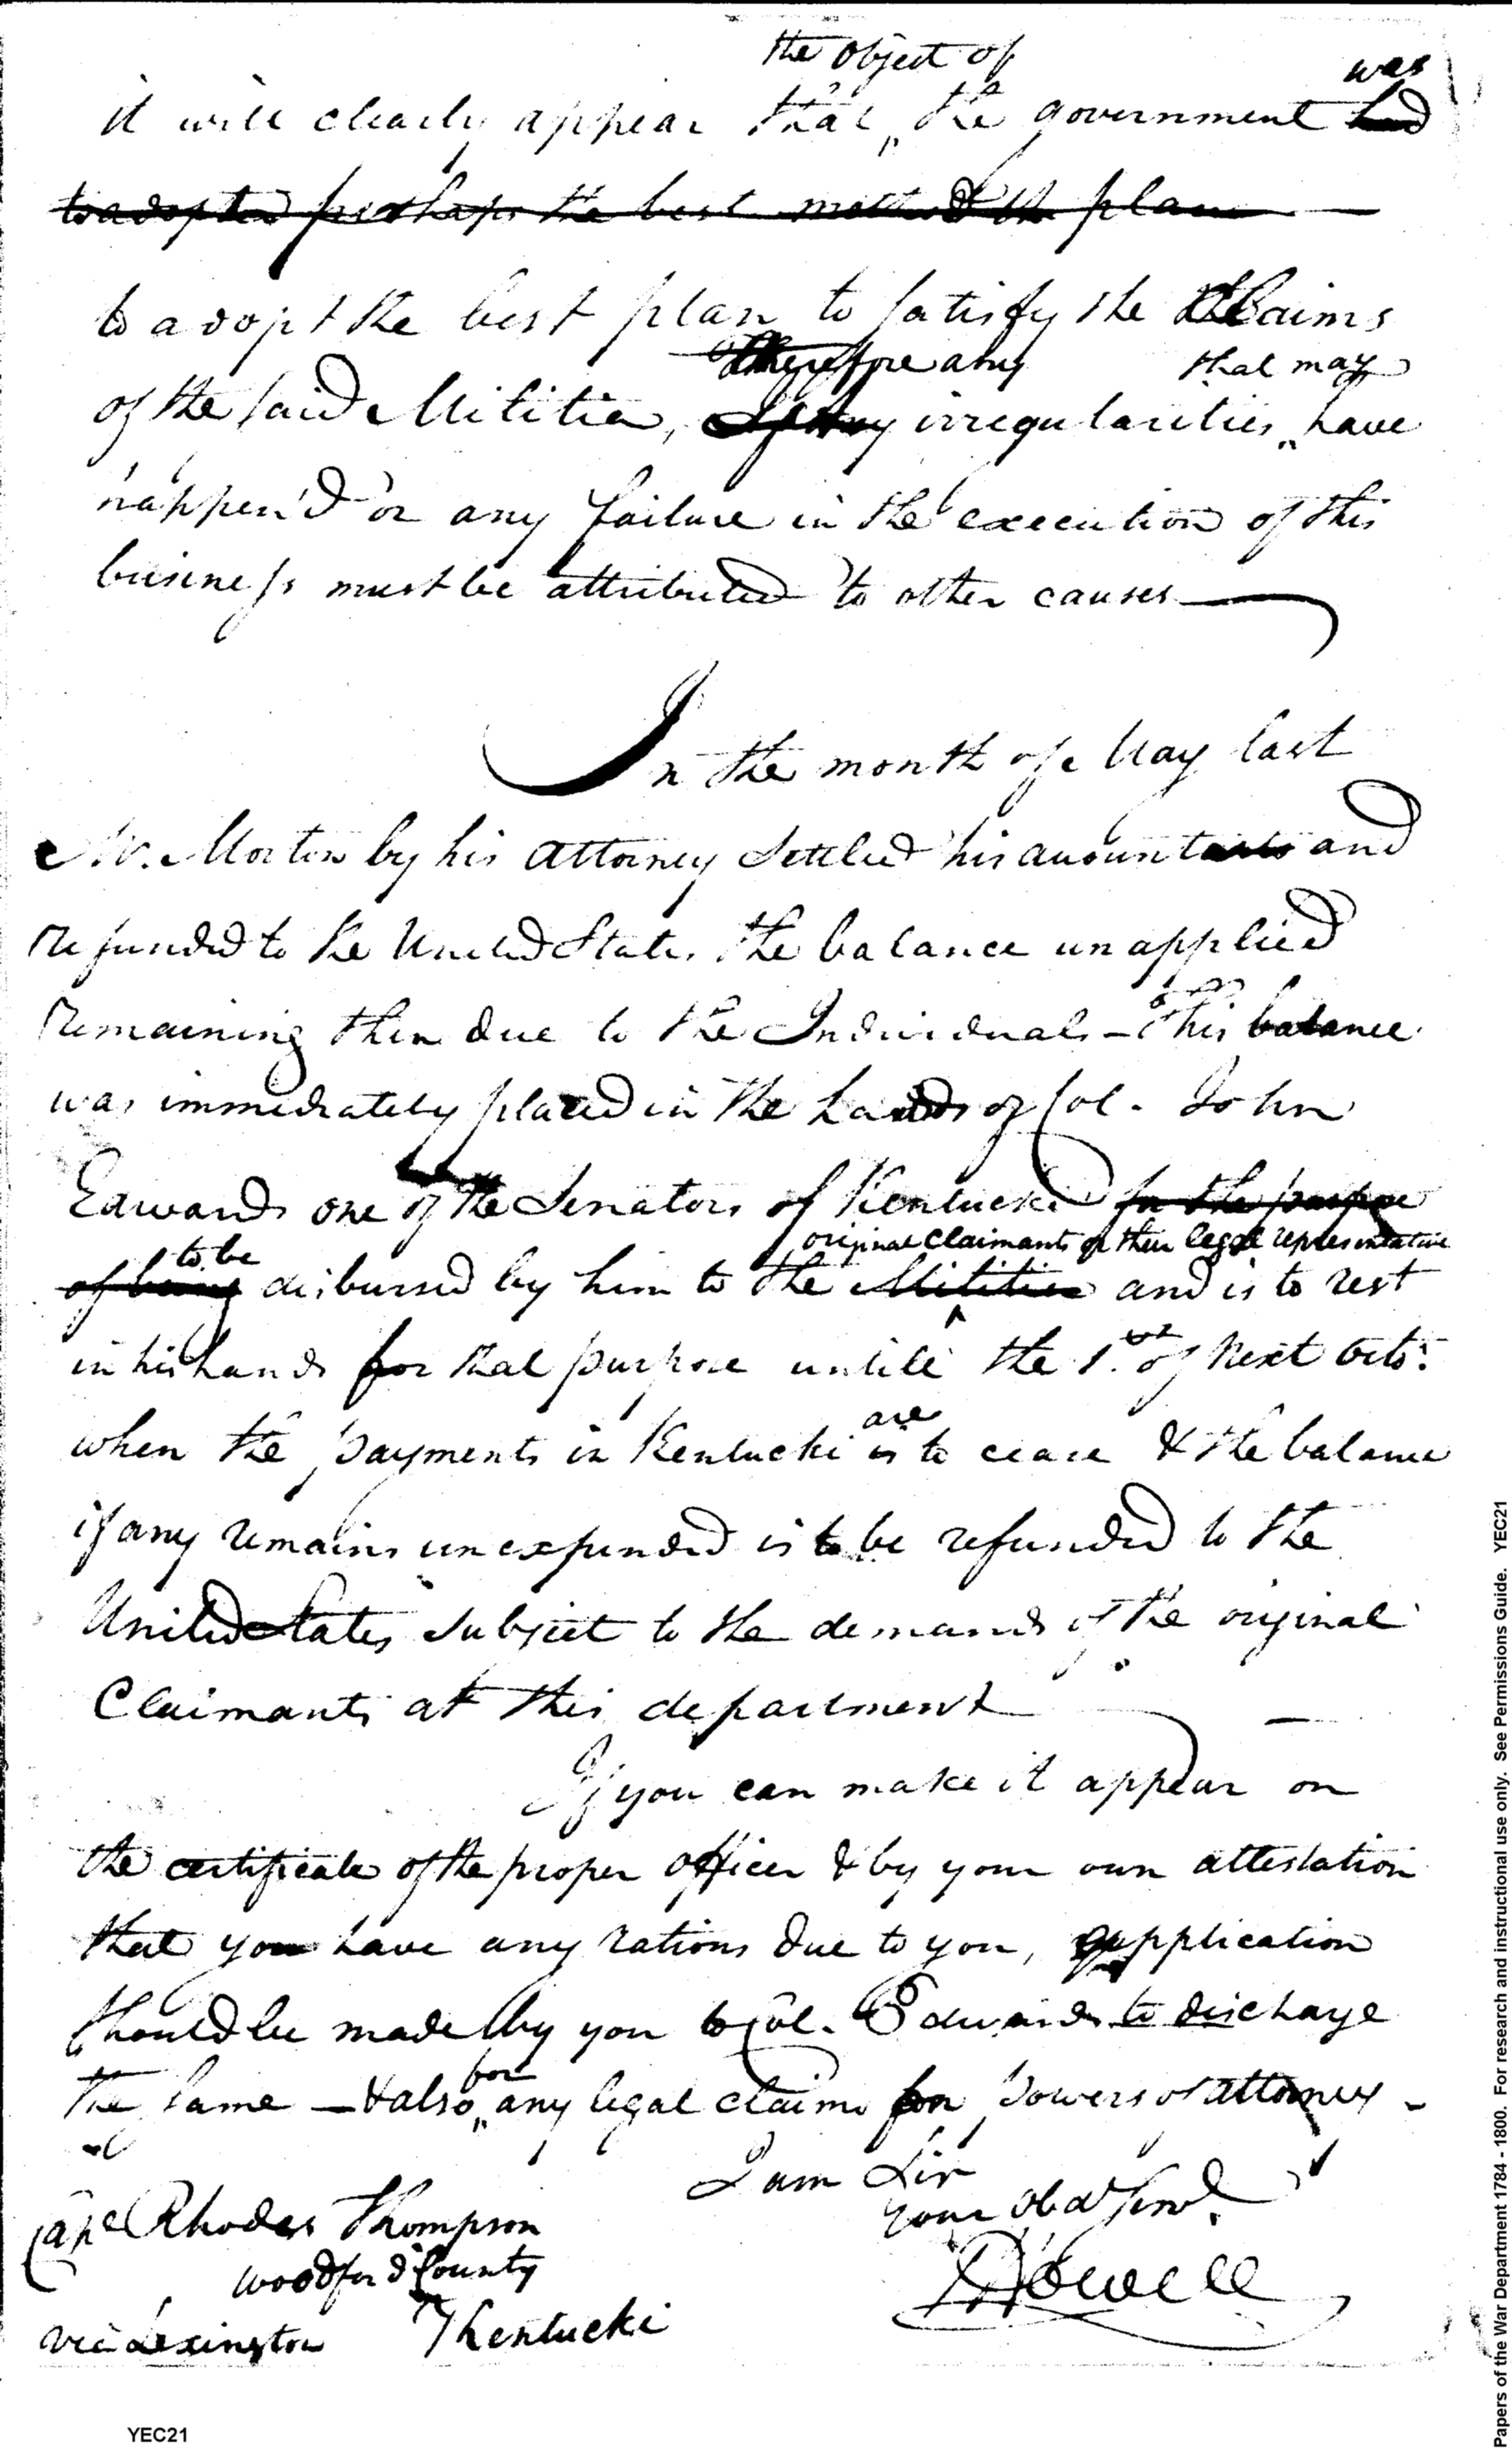 the object of was
it will clearly appear that the government had
to adopted perhaps the best method the plan
to adopt the best plan to satisfy the Claims
therefore any that may
of the said Militia, If any irregularities have
happen'd or any failure in the execution of this
business must be attributed to other causes
In the month of May last
Mr. Morton by his attorney Settled his account and
refunded to the United States the balance unapplied
remaining then due to the Individuals - this balance
was immediately placed in the hands of Col. John
Edwards one of the Senators of Kentucki for the purpose
original Claimants or their legal representative
to be
of being disbursed by him to the Militia and is to rest
in his hands for that purpose untill the 1st of Next Octr.
are
when the payments in Kentucki is to cease & the balance
if any remains unexpended is to be refunded to the
United States Subject to the demands of the original
Claimants at this department
If you can make it appear on
the certificate of the proper officer & by your own attestation
that you have any rations due to you, application
should be made by you to Col. Edwards to discharge
for
the same - & also any legal claims for powers of attorney -
I am Sir
your Obdt Servt.
Capt Rhodes Thompson
Woodford County
JHowell
via Lexington Kentucki
YEC21
Papers of the War Department 1784 - 1800. For research and instructional use only. See Permissions Guide. YEC21